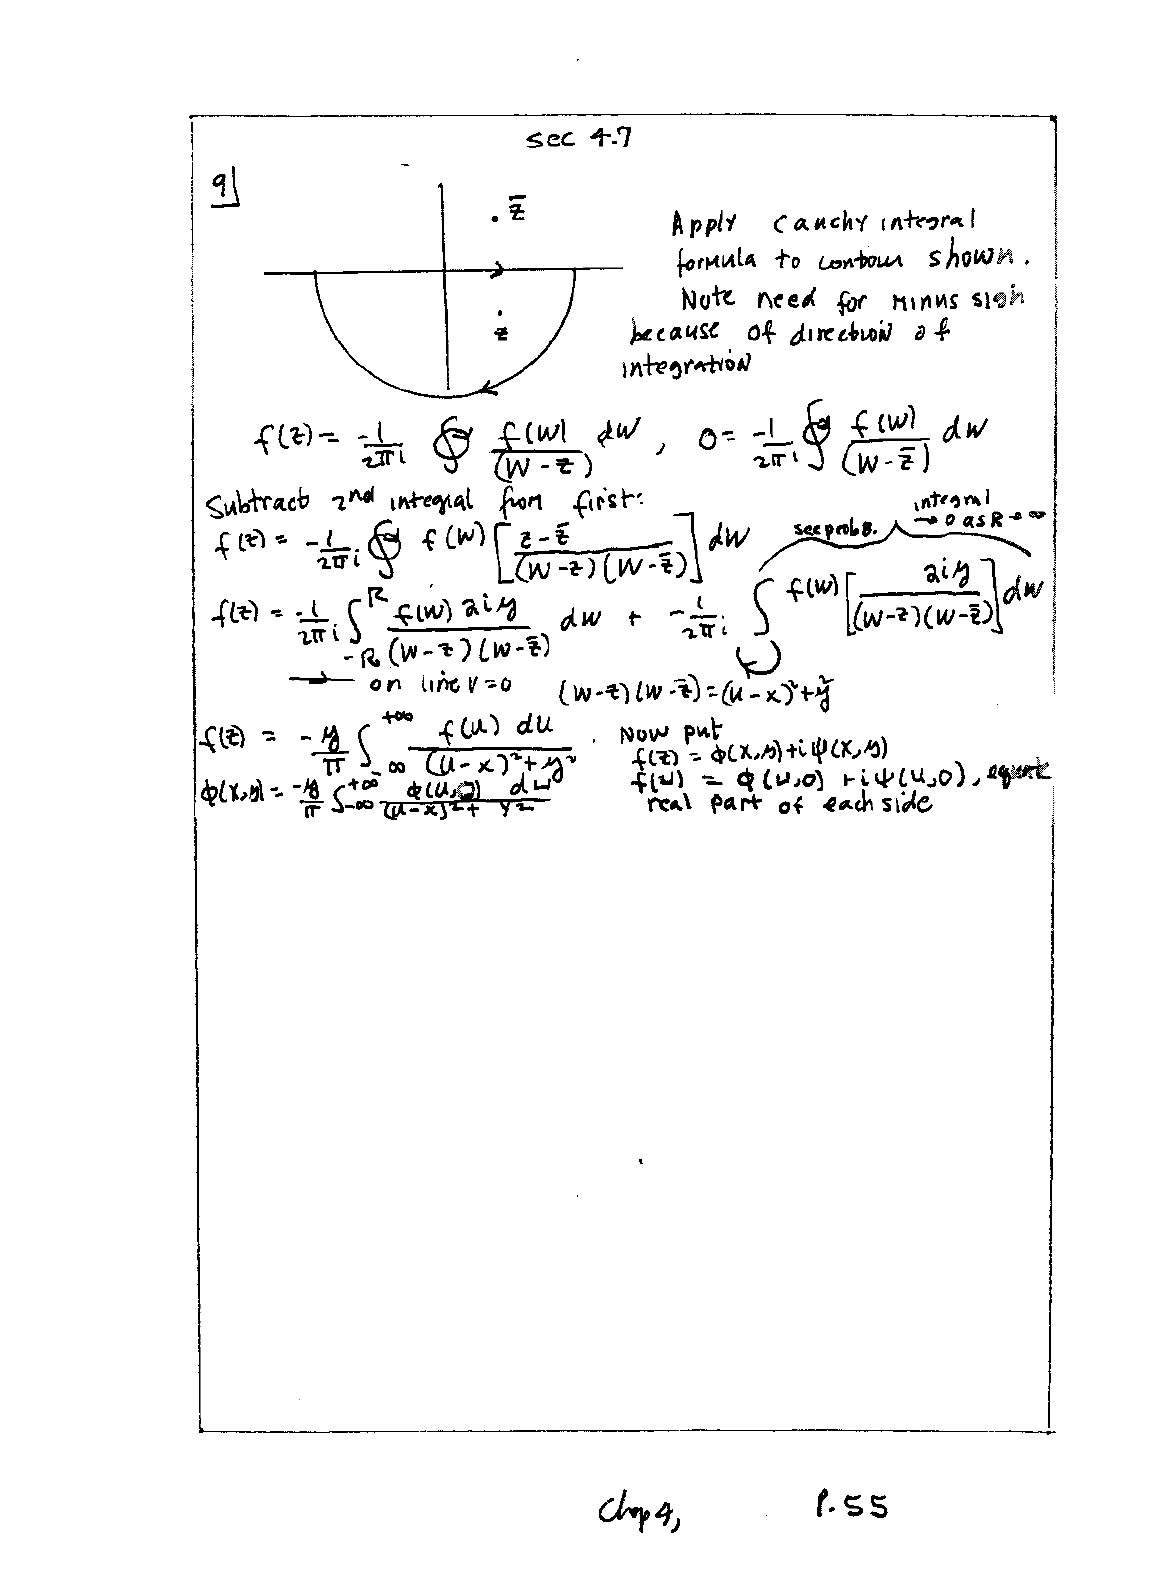 sec 4.7
9
z̄
z
Apply Cauchy integral
formula to contour shown.
Note need for minus sign
because of direction of
integration
f(z) = -1/2πi ∮ f(w)/(w-z) dw, 0 = -1/2πi ∮ f(w)/(w-z̄) dw
Subtract 2nd integral from first:
see prob 8. integral → 0 as R → ∞
f(z) = -1/2πi ∮ f(w) [z-z̄/(w-z)(w-z̄)] dw
f(z) = -1/2πi ∫_{-R}^{R} f(w) 2iy/(w-z)(w-z̄) dw + -1/2πi ∫ f(w) [2iy/(w-z)(w-z̄)] dw
→ on line v=0 (w-z)(w-z̄) = (u-x)²+y²
f(z) = -y/π ∫_{-∞}^{+∞} f(u) du/(u-x)²+y². Now put
f(z) = φ(x,y)+iψ(x,y)
φ(x,y) = -y/π ∫_{-∞}^{+∞} φ(u,0) du/(u-x)²+y² f(u) = φ(u,0)+iψ(u,0), equate
real part of each side
Chap 4, P. 55